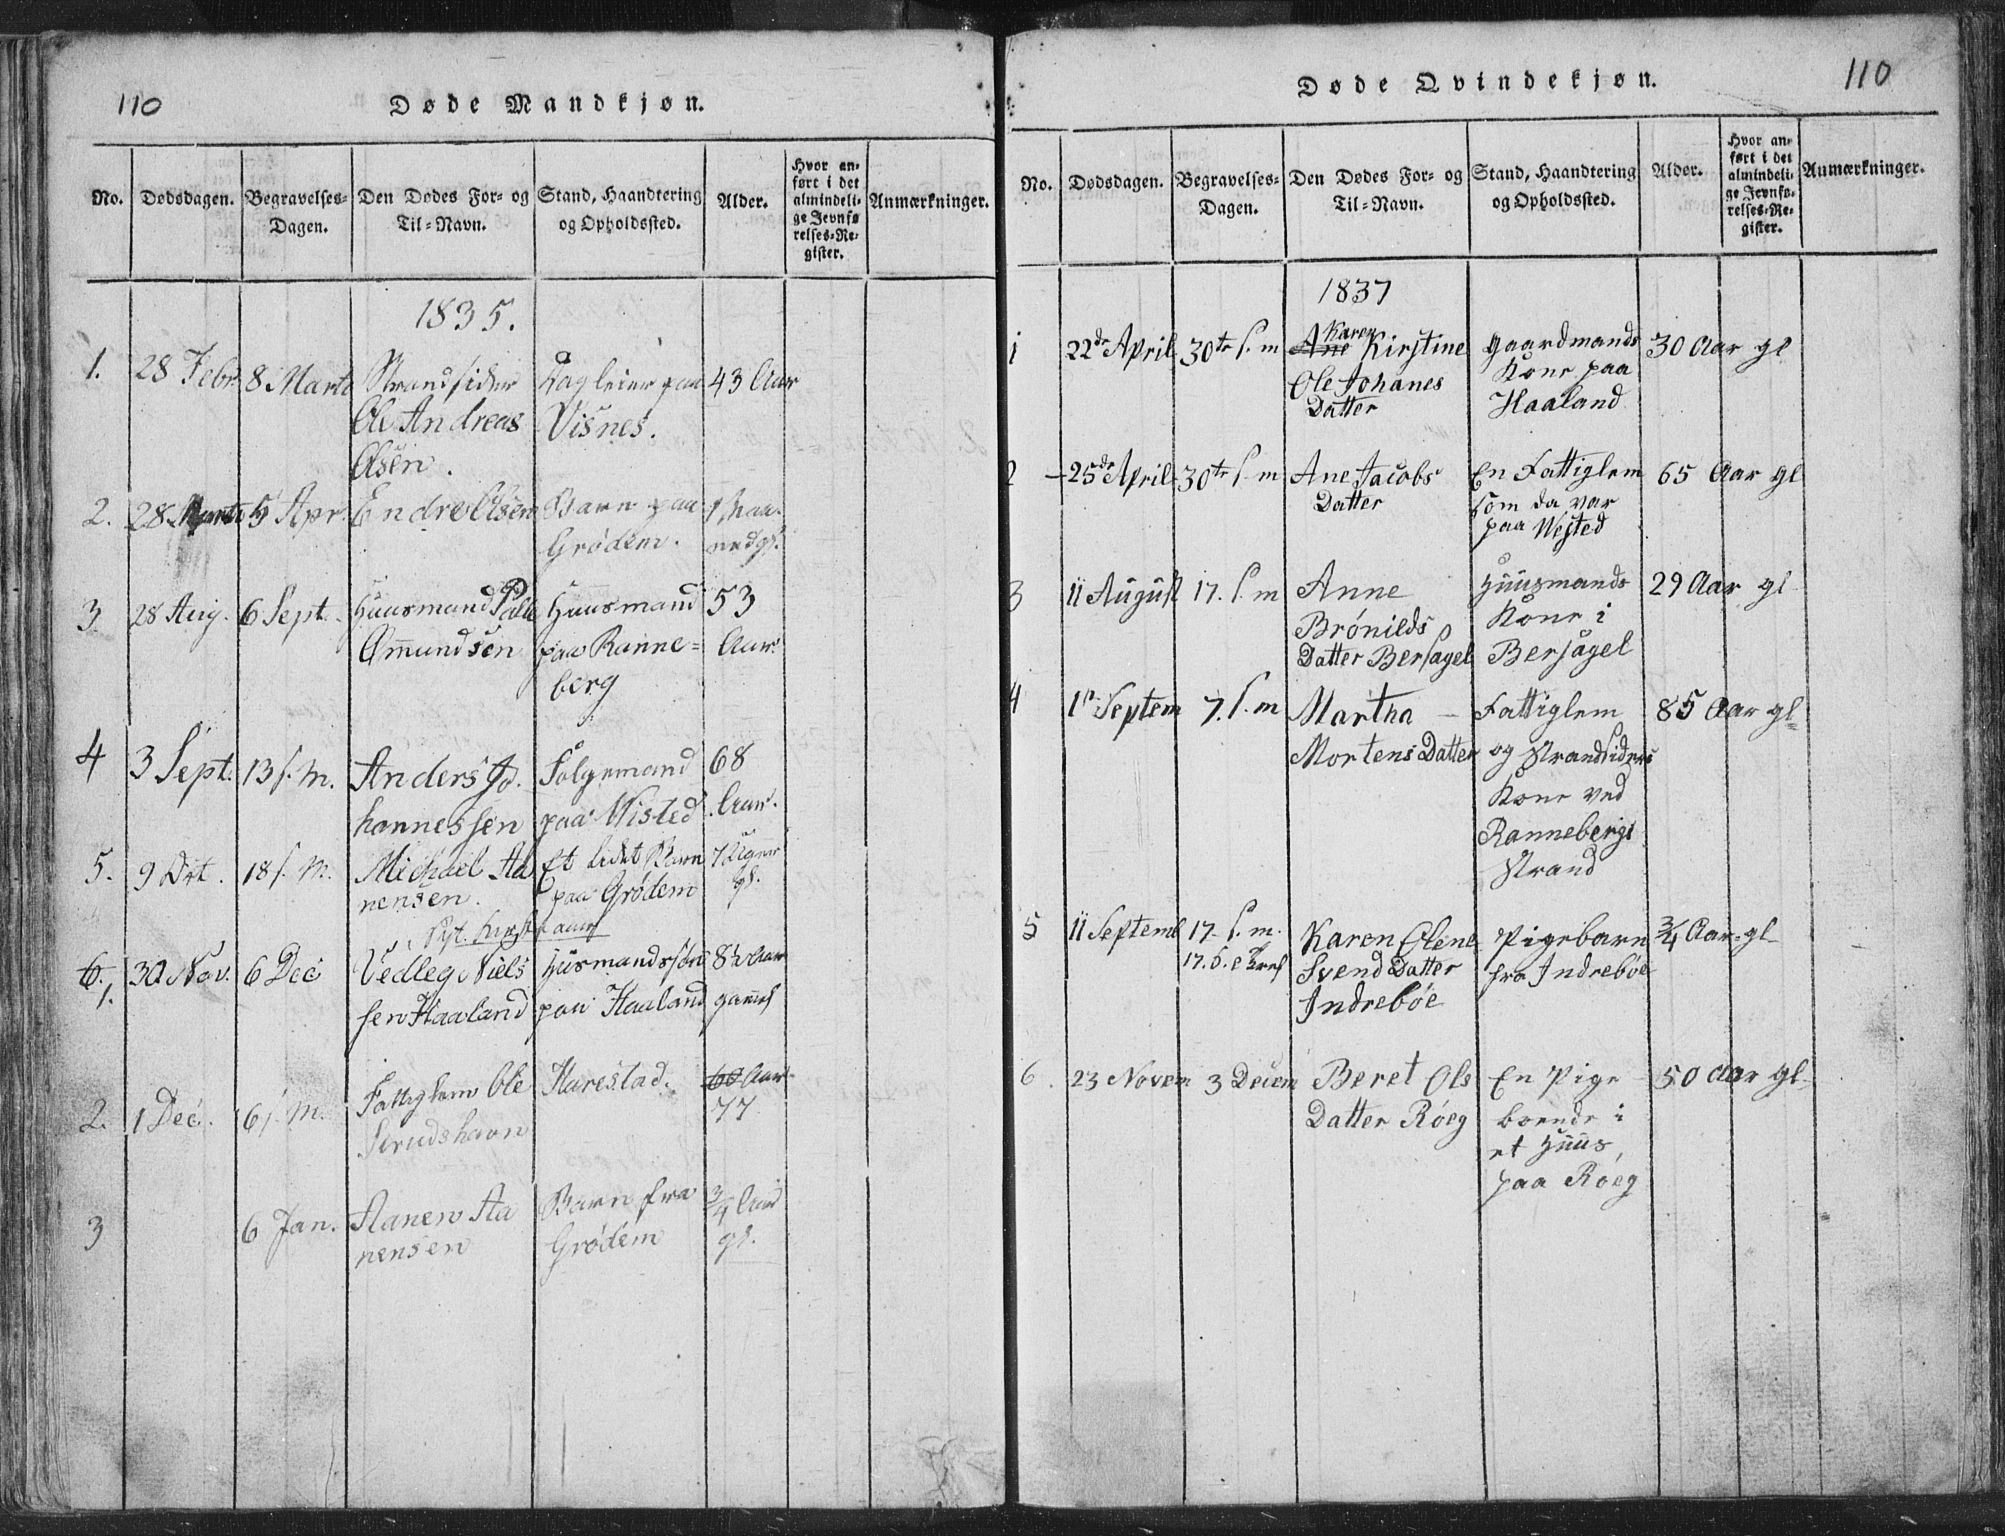 110
Døde Mandkjøn.
No. Dødsdagen. Begravelses-Dagen. Den Dødes For- og Til-Navn. Stand, Haandtering og Opholdssted. Alder. Hvor anført i det almindelige Jevnførelses-Register. Anmærkninger.
1835.
1. 28 Febr. 8 Marts Strandsider Dagleier paa 43 Aar
Ole Andreas Visnes.
Olsen.
2. 28 Marts 5 Apr. Endre Olsen Barn paa 1 Maa-
Grødem. ned gl.
3. 28 Aug. 6 Sept. Huusmand Huusmand 53
Amundsen paa Ranne= Aar.
berg
4 3 Sept. 13 s. M. Anders Jo- Folgemand 68
hannessen paa Wisted Aar.
5. 9 Oct. 18 s. M. Michael Aa Et lidet Barn 7 Uger
nensen. paa Grødem gl.
6. 30 Nov. 6 Dec Vedleg Niels Husmandssøn 8½ Aar
1.
sen Haaland paa Haaland gamml
2. 1 Dec. 6 s. M. Fattiglem Ole Harestad. 60 Aar
77
3 6 Jan. Aanen Aa Barn fra 3/4 Aar
nensen Grødem gl.
110
Døde Qvindekjøn.
No. Dødsdagen. Begravelses-Dagen. Den Dødes For- og Til-Navn. Stand, Haandtering og Opholdssted. Alder. Hvor anført i det almindelige Jevnførelses-Register. Anmærkninger.
1837
Karen
1 22de April 30te s. m Ane Kirstine Gaardmands 30 Aar gl
Ole Johanes Kone paa
Datter Haaland
2 25de April 30te s. m Ane Jacobs En Fattiglem 65 Aar gl
Datter som da var
paa Wisted
3 11 August 17. s. m Anne Huusmands 29 Aar gl
Brónilds Kone i
Datter Bersagel Bersagel
4 1ste Septem 7. s. m Martha Fattiglem 85 Aar gl
Mortens Datter og Strandsiders
Kone ved
Rannebergs
Strand
5 11 Septemb 17 s. m. Karen Elene Pigebarn 3/4 Aar gl
Svend Datter fra Indrebøe
Indrebøe
6. 23 Novem 3 Decem Beret Ols En Pige 50 Aar gl
Datter Róeg boende i
et Huus
paa Róeg